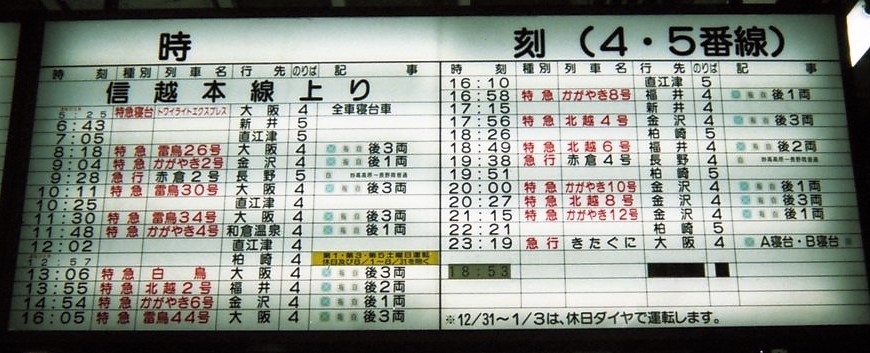 時 刻（4・5番線）
時 刻 種別 列車名 行先 のりば 記 事
信越本線上り
5:25 特急寝台 トワイライトエクスプレス 大阪 4 全車寝台車
6:43 新井 5
7:05 直江津 5
8:18 特急 雷鳥26号 大阪 4 後3両
9:04 特急 かがやき2号 金沢 4 後1両
9:28 急行 赤倉2号 長野 5 妙高高原－長野間普通
10:11 特急 雷鳥30号 大阪 4 後3両
10:25 直江津 4
11:30 特急 雷鳥34号 大阪 4 後3両
11:48 特急 かがやき4号 和倉温泉 4 後1両
12:02 直江津 4
12:57 柏崎 4 第1・第3・第5土曜日運転
13:06 特急 白鳥 大阪 4 後3両
13:55 特急 北越2号 福井 4 後2両
14:54 特急 かがやき6号 金沢 4 後1両
16:05 特急 雷鳥44号 大阪 4 後3両
時 刻 種別 列車名 行先 のりば 記 事
16:10 直江津 5
16:58 特急 かがやき8号 福井 4 後1両
17:15 新井 4
17:56 特急 北越4号 金沢 4 後3両
18:26 柏崎 5
18:49 特急 北越6号 福井 4 後2両
19:38 急行 赤倉4号 長野 4 妙高高原－長野間普通
19:51 柏崎 5
20:00 特急 かがやき10号 金沢 4 後1両
20:27 特急 北越8号 金沢 4 後3両
21:15 特急 かがやき12号 金沢 4 後1両
22:21 柏崎 5
23:19 急行 きたぐに 大阪 4 A寝台・B寝台
18:53
※12/31～1/3は、休日ダイヤで運転します。